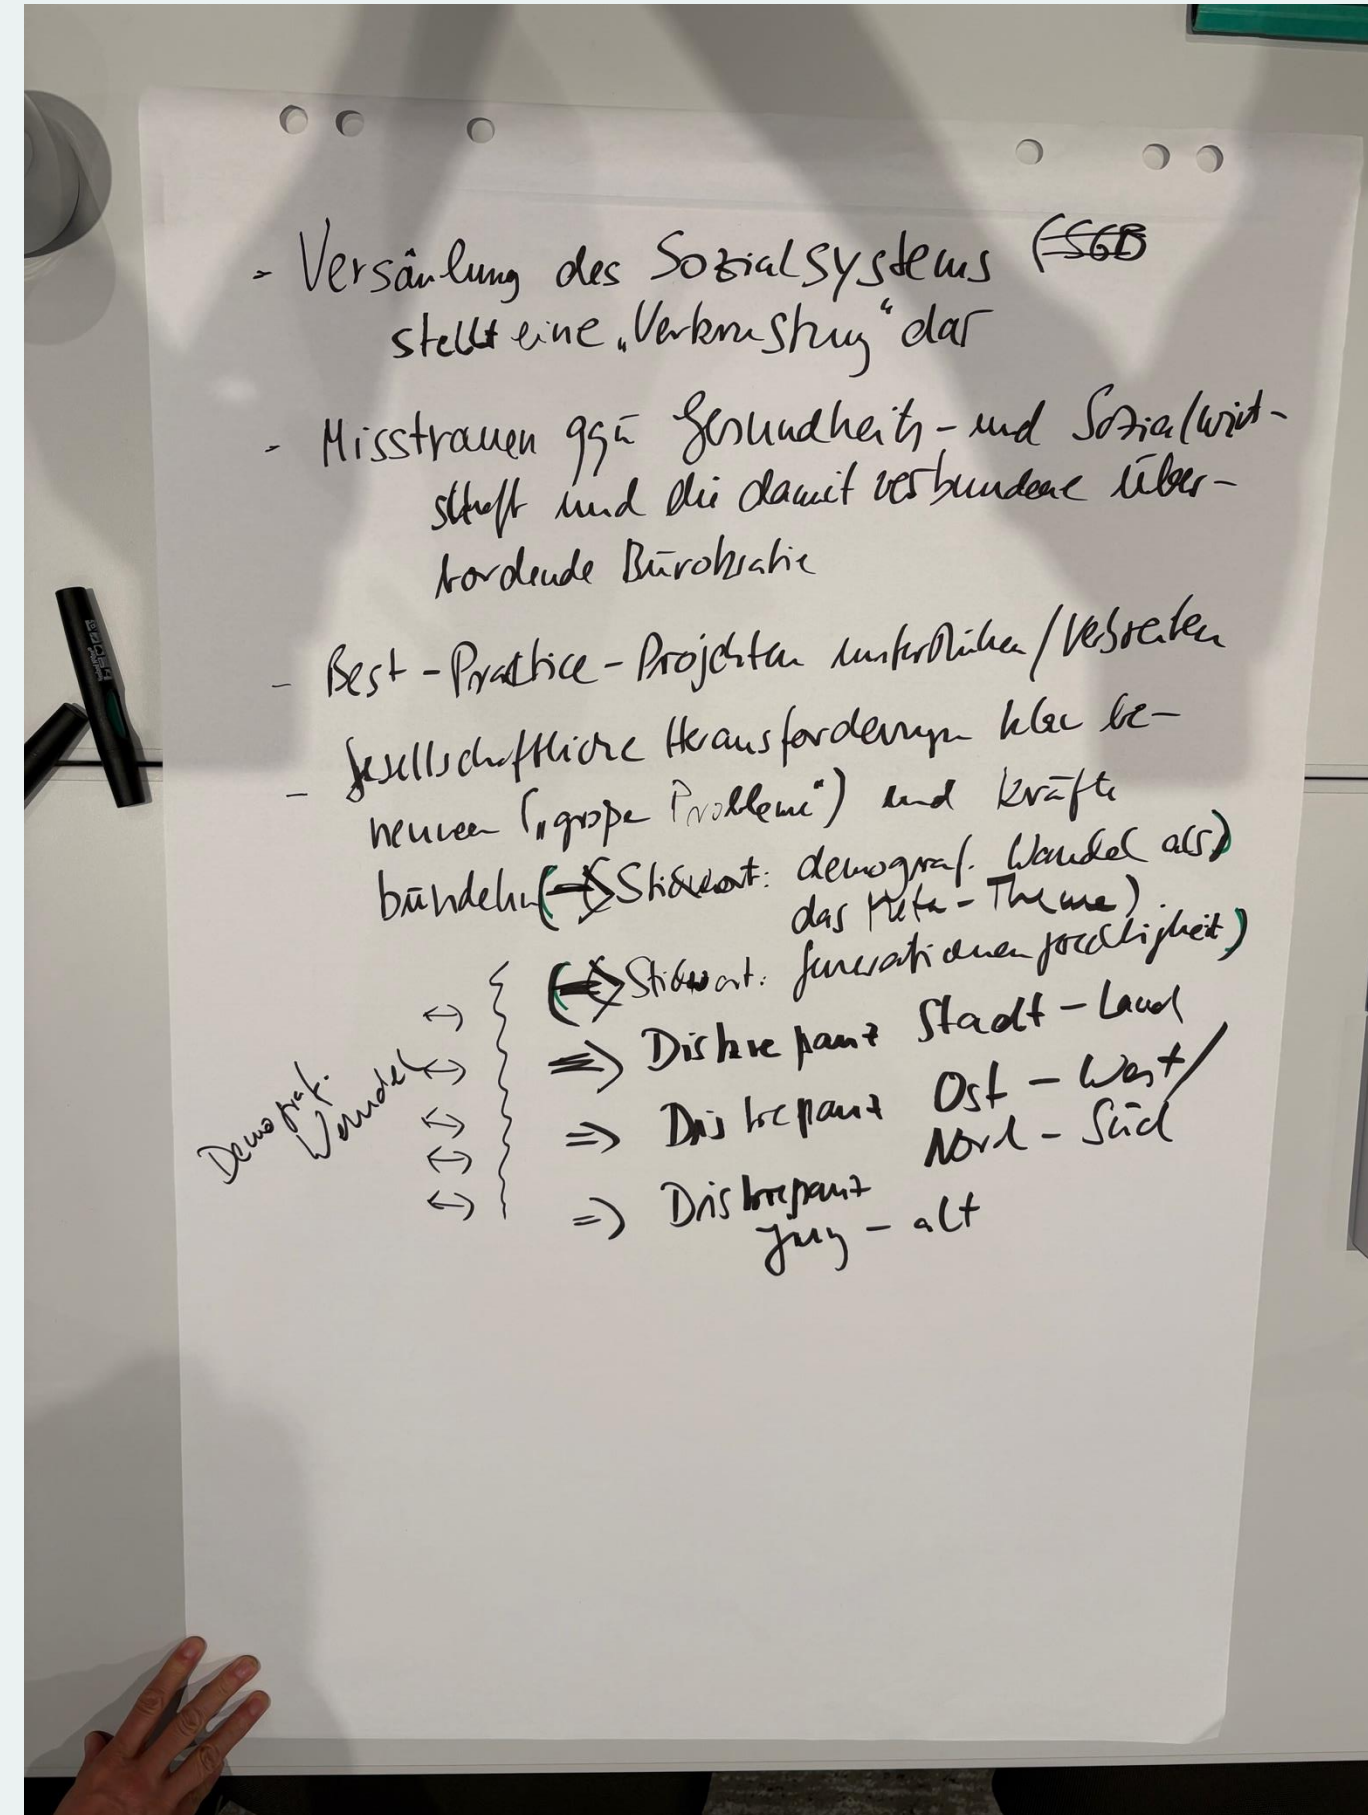 - Versäulung des Sozialsystems (SGB
stellt eine „Verkrustung“ dar
- Misstrauen ggü Gesundheits- und Sozialwirt-
schaft und die damit verbundene über-
bordende Bürokratie
- Best-Practice-Projekten unterstützen/verbreiten
- Gesellschaftliche Herausforderungen klar be-
nennen („große Probleme“) und Kräfte
bündeln (=> Stichwort: demograf. Wandel als)
das Meta-Thema)
(=> Stichwort: Generationengerechtigkeit)
=> Diskrepanz Stadt - Land
=> Diskrepanz Ost - West/
Nord - Süd
=> Diskrepanz
Jung - alt
Demograf.
Wandel